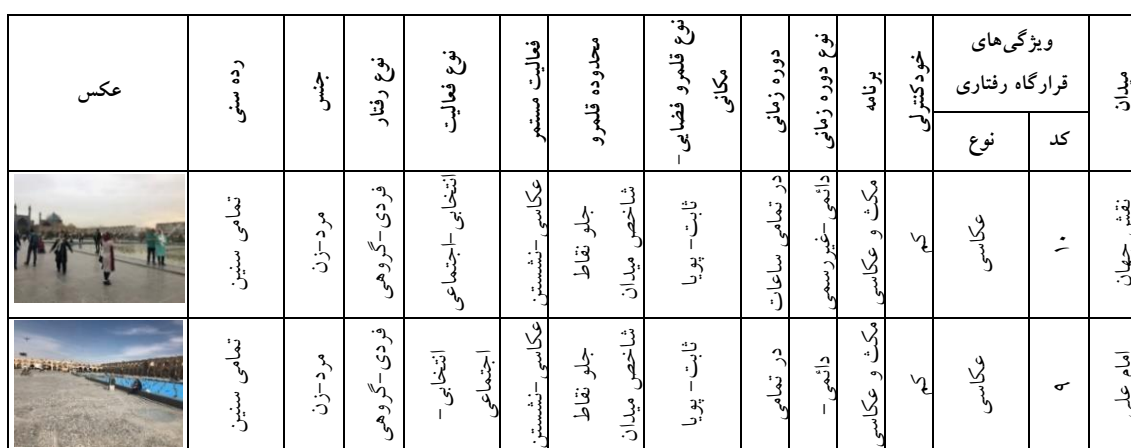 میدان
ویژگی‌های
قرارگاه رفتاری
کد
نوع
خودکنترلی
برنامه
نوع دوره زمانی
دوره زمانی
نوع قلمرو فضایی-
مکانی
محدوده قلمرو
فعالیت مستمر
نوع فعالیت
نوع رفتار
جنس
رده سنی
عکس
نقش جهان
۱۰
عکاسی
کم
مکث و عکاسی
دائمی-غیررسمی
در تمامی ساعات
ثابت-پویا
جلو نقاط
شاخص میدان
عکاسی-نشستن
انتخابی-اجتماعی
فردی-گروهی
مرد-زن
تمامی سنین
امام علی
۹
عکاسی
کم
مکث و عکاسی
دائمی-
در تمامی
ثابت-پویا
جلو نقاط
شاخص میدان
عکاسی-نشستن
انتخابی-
اجتماعی
فردی-گروهی
مرد-زن
تمامی سنین